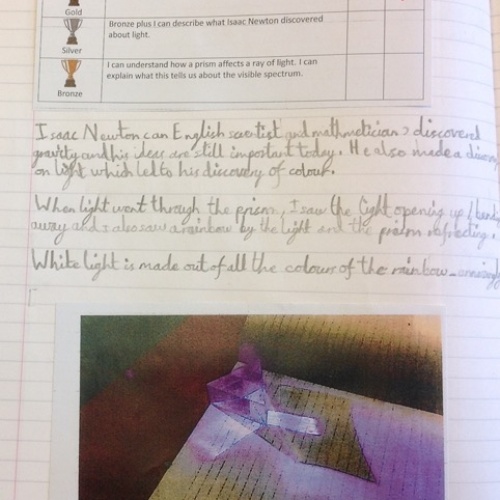 Gold
Bronze plus I can describe what Isaac Newton discovered
about light.
Silver
I can understand how a prism affects a ray of light. I can
explain what this tells us about the visible spectrum.
Bronze
Isaac Newton (an English scientist and mathmetician) discovered
gravity and his ideas are still important today. He also made a
on light which led to his discovery of colour.
When light went through the prism, I saw the light opening up /
away and I also saw a rainbow by the light and the prism refrecting.
White light is made out of all the colours of the rainbow -